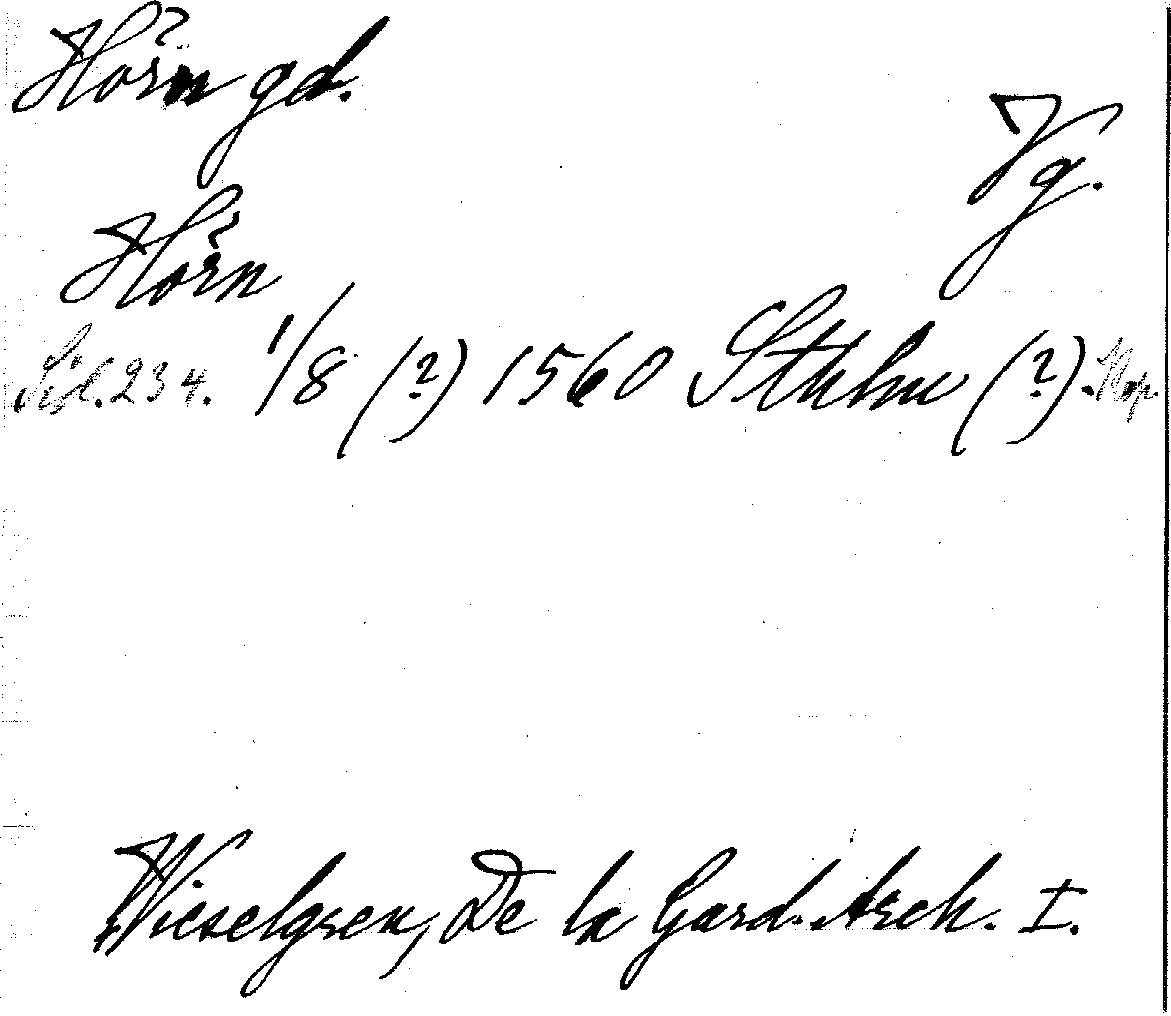 Hörn gd.
Vg.
Hörn
Sid. 234. 1/8 (?) 1560 Sthlm (?). Kop.
Wieselgren, De la Gard. Arch. I.